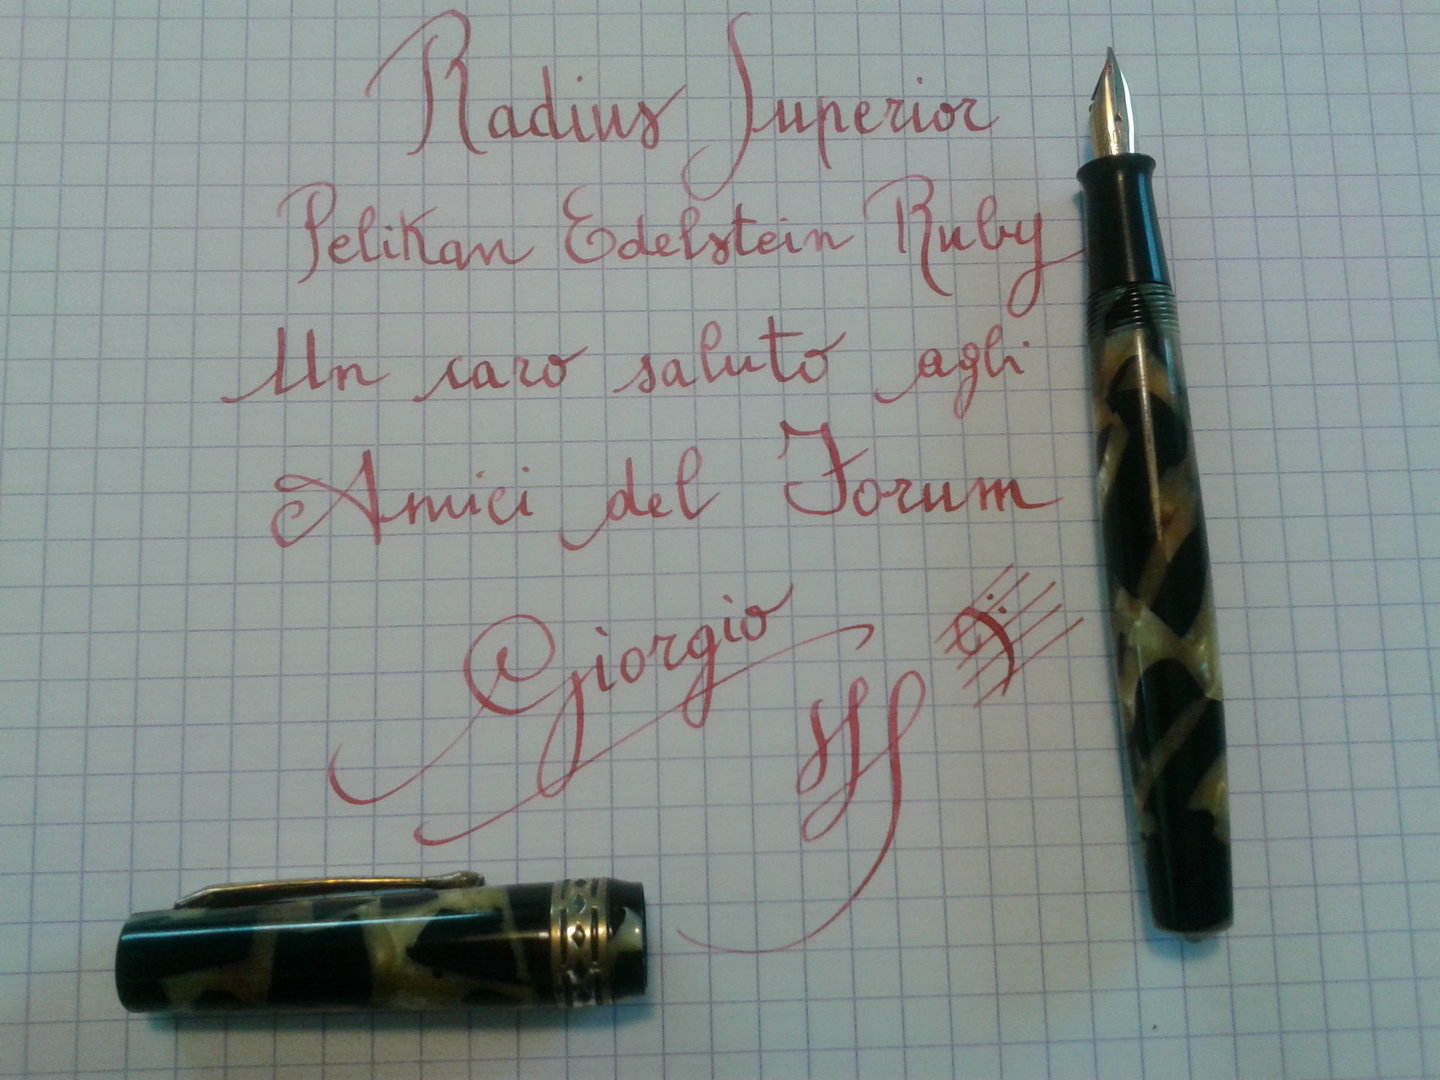 Radius Superior
Pelikan Edelstein Ruby
Un caro saluto agli
Amici del Forum
Giorgio